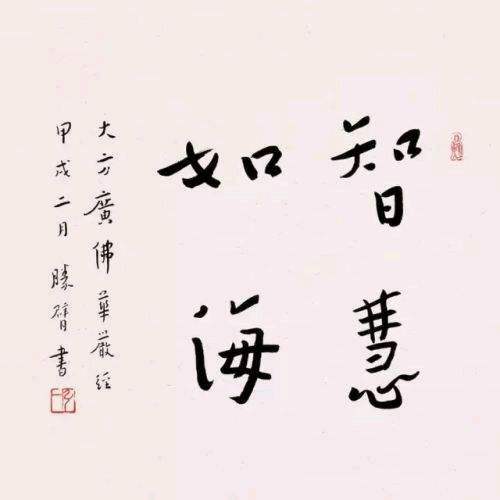 智慧
如海
大方廣佛華嚴經
甲戌二月勝㬱書